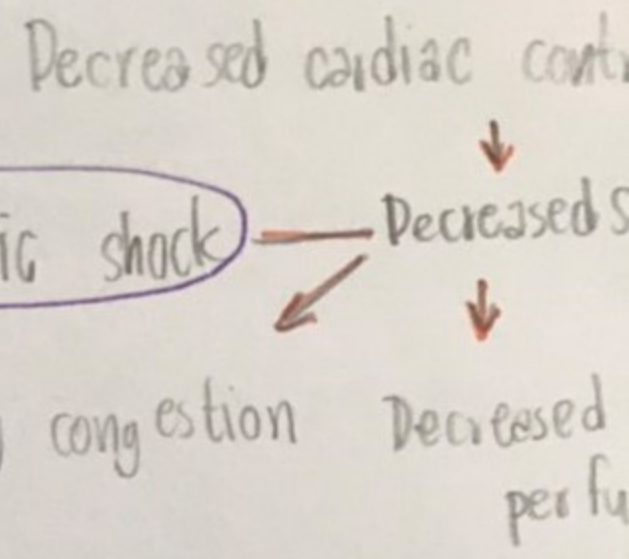 Decreased cardiac cont
ic shock Decreased S
congestion Decreased
perfu